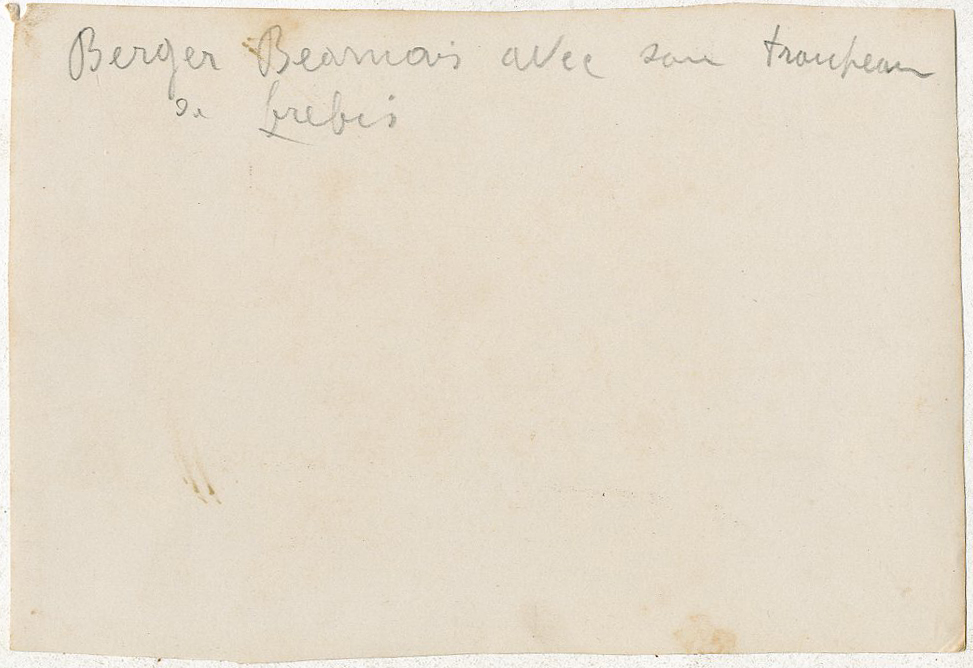 Berger Bearnais avec son troupeau
de brebis